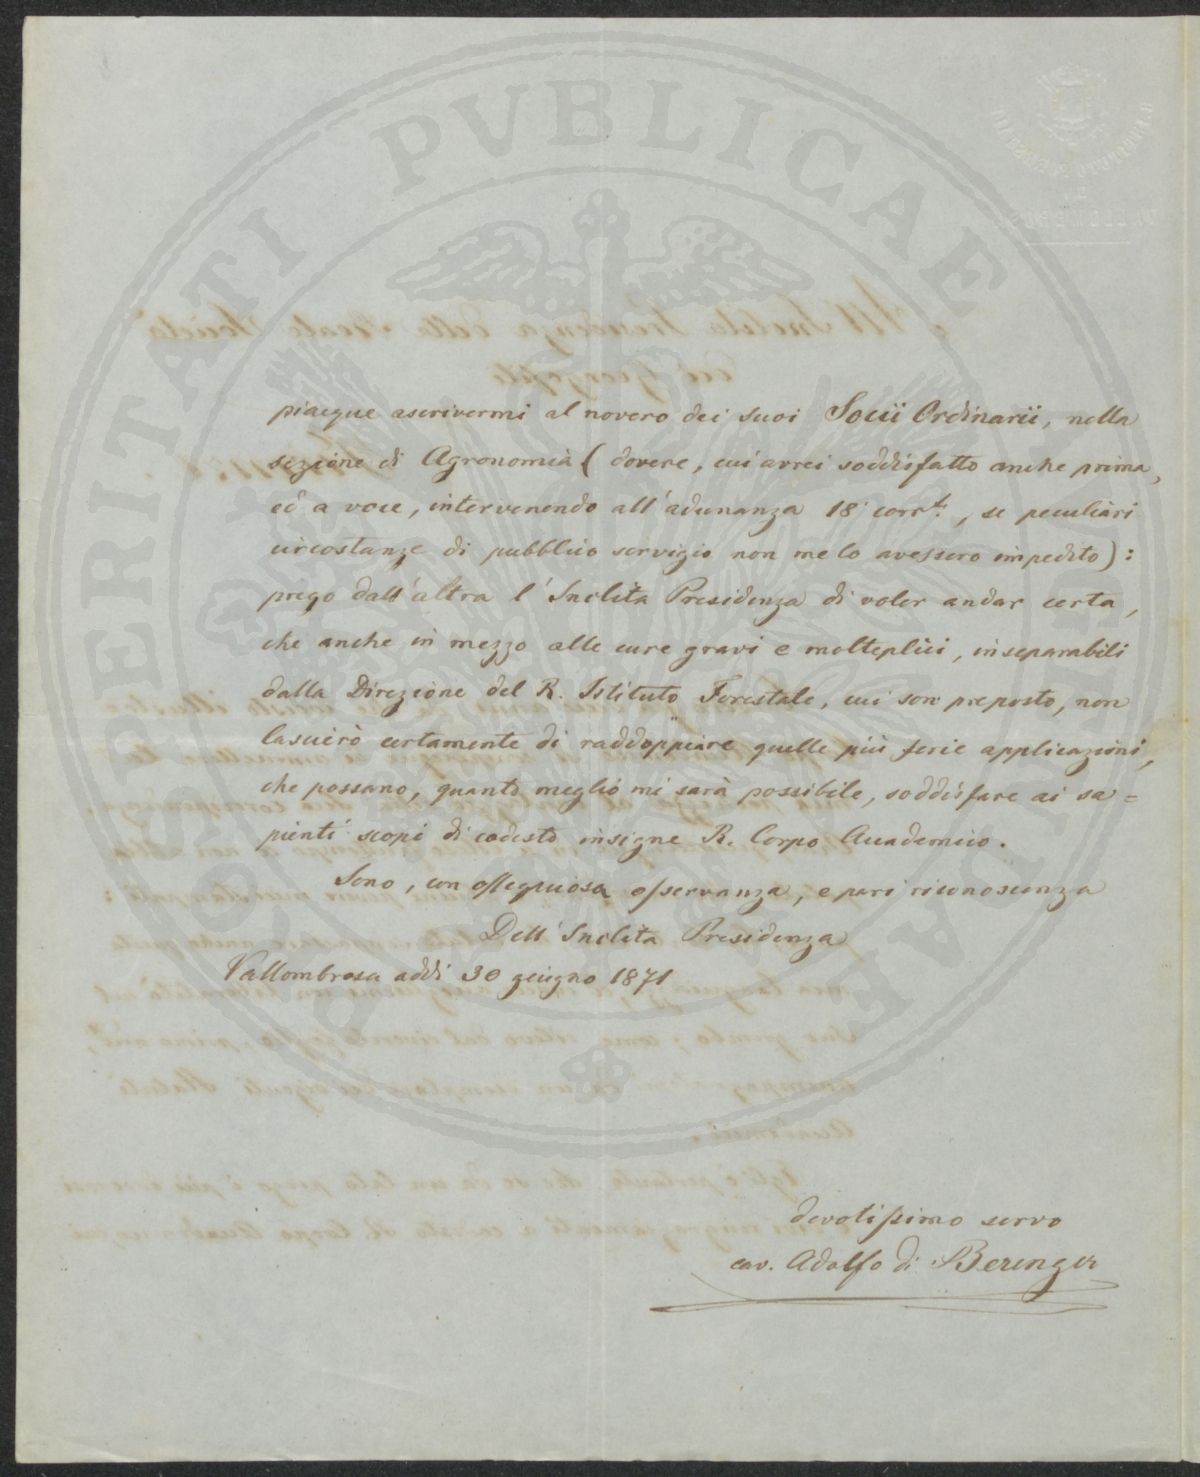 PROSPERITATI PVBLICAE AVGENDAE
piacque ascrivermi al novero dei suoi Socii Ordinarii, nella
sezione di Agronomia (dovere, cui avrei soddisfatto anche prima,
ed a voce, intervenendo all'adunanza 18 corr.te, se peculiari
circostanze di pubblico servigio non me lo avessero impedito):
prego dall'altra l'Inclita Presidenza di voler andar certa,
che anche in mezzo alle cure gravi e molteplici, inseparabili
dalla Direzione del R. Istituto Forestale, cui son preposto, non
lascierò certamente di raddoppiare quelle più serie applicazioni,
che possano, quanto meglio mi sarà possibile, soddisfare ai sa=
pienti scopi di codesto insigne R. Corpo Accademico.
Sono, con ossequiosa osservanza, e pari riconoscenza
Dell'Inclita Presidenza
Vallombrosa addì 30 giugno 1871
devotissimo servo
cav. Adolfo di Berenger